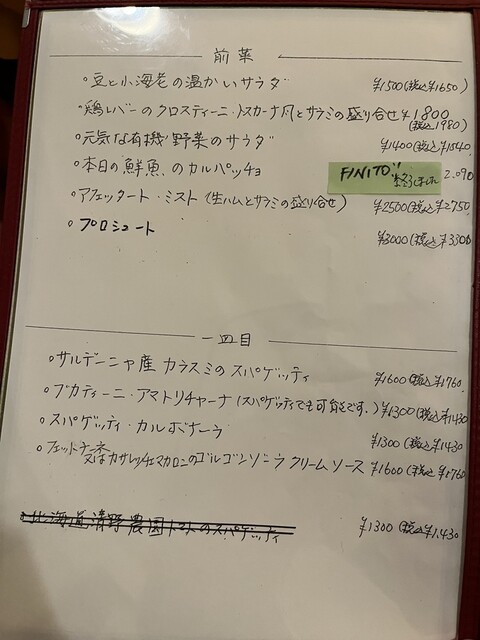 前菜
○豆と小海老の温かいサラダ ¥1500(税込¥1650)
○鶏レバーのクロスティーニ・トスカーナ風とサラミの盛り合せ ¥1800
(税込1980)
○元気な有機野菜のサラダ ¥1400(税込¥1540
○本日の鮮魚のカルパッチョ FINITO!! 終了しました 2.090
○アフェッタート・ミスト(生ハムとサラミの盛り合せ) ¥2500(税込¥2750
○プロシュート ¥3000(税込¥3300
一皿目
○サルデーニャ産カラスミのスパゲッティ ¥1600(税込¥1760
○ブカティーニ・アマトリチャーナ(スパゲッティでも可能です。) ¥1300(税込¥1430
○スパゲッティ・カルボナーラ ¥1300(税込¥1430
○フェットチーネ
又はカサレッチェマカロニのゴルゴンゾニラ クリームソース ¥1600(税込¥1760
北海道清野農園トマトのスパゲッティ ¥1300(税込¥1,430